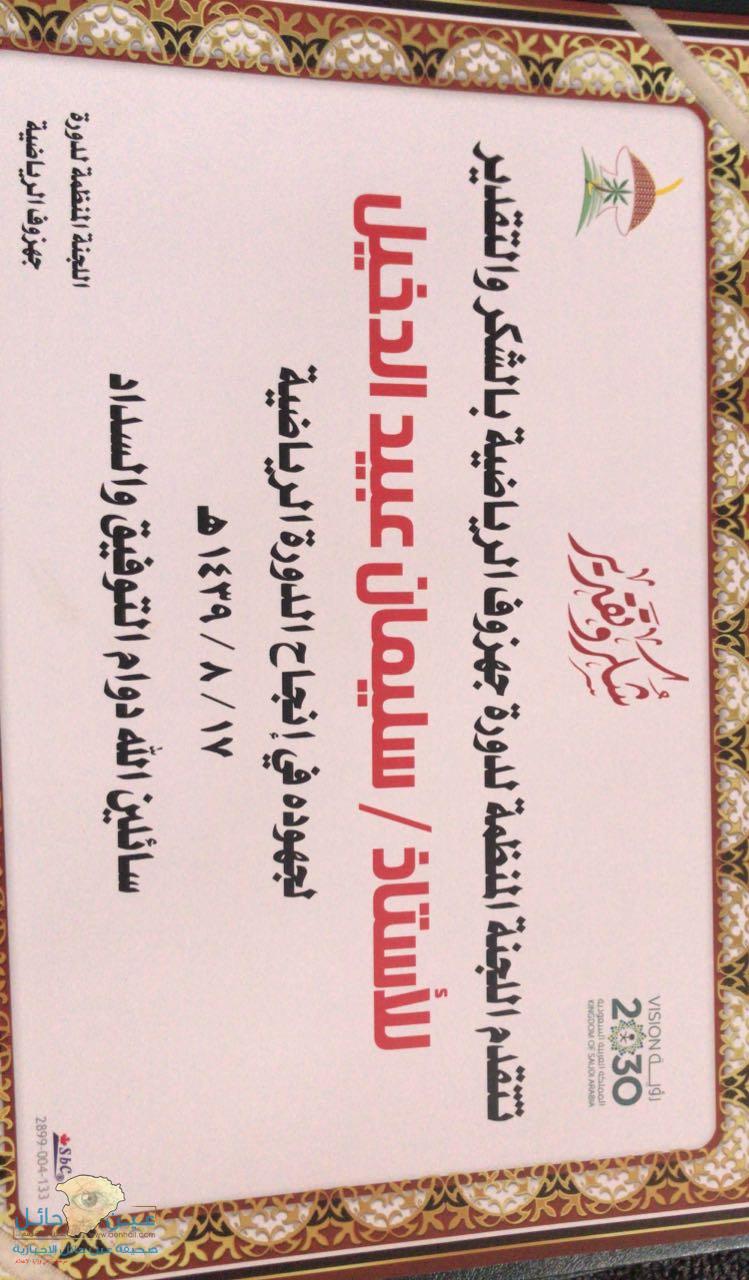 شكر وتقدير
رؤية VISION
2030
المملكة العربية السعودية
KINGDOM OF SAUDI ARABIA
تتقدم اللجنة المنظمة لدورة جهزوف الرياضية بالشكر والتقدير
للأستاذ / سليمان عبيد الدخيل
لجهوده في إنجاح الدورة الرياضية
١٧ / ٨ / ١٤٣٩ هـ
سائلين الله دوام التوفيق والسداد
اللجنة المنظمة لدورة
جهزوف الرياضية
SbC®
2899-004-133
عين حائل
www.aenhail.com
صحيفة عين حائل الاخبارية